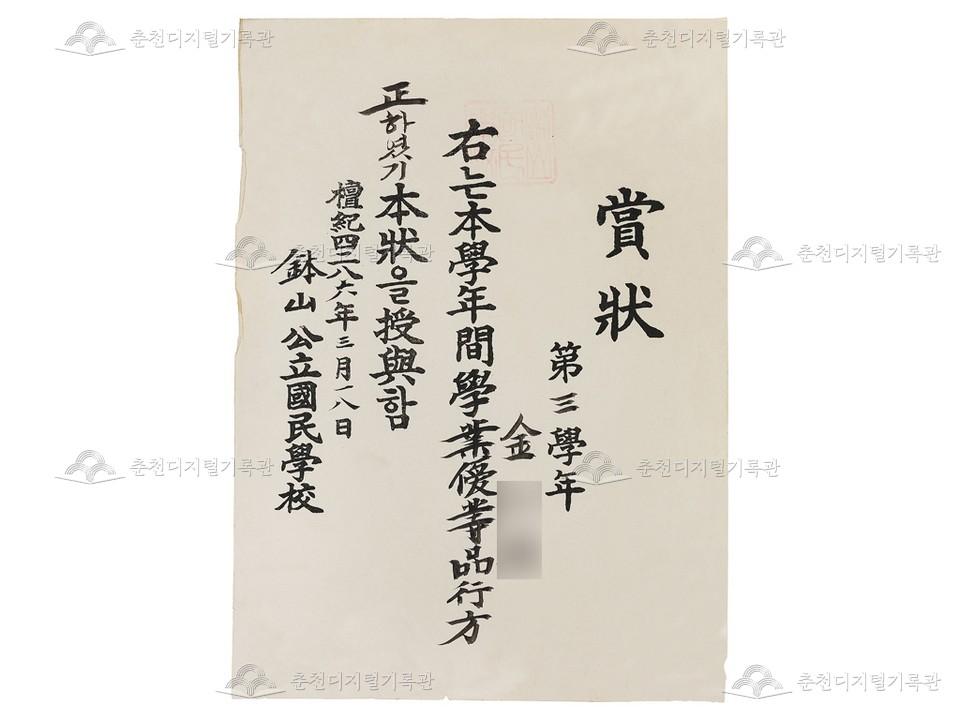 賞狀
第三學年
金
右는本學年間學業優等品行方
正하였기本狀을授與함
檀紀四二八六年三月一八日
鉢山公立國民學校
춘천디지털기록관
춘천디지털기록관
춘천디지털기록관
춘천디지털기록관
춘천디지털기록관
춘천디지털기록관
춘천디지털기록관
춘천디지털기록관